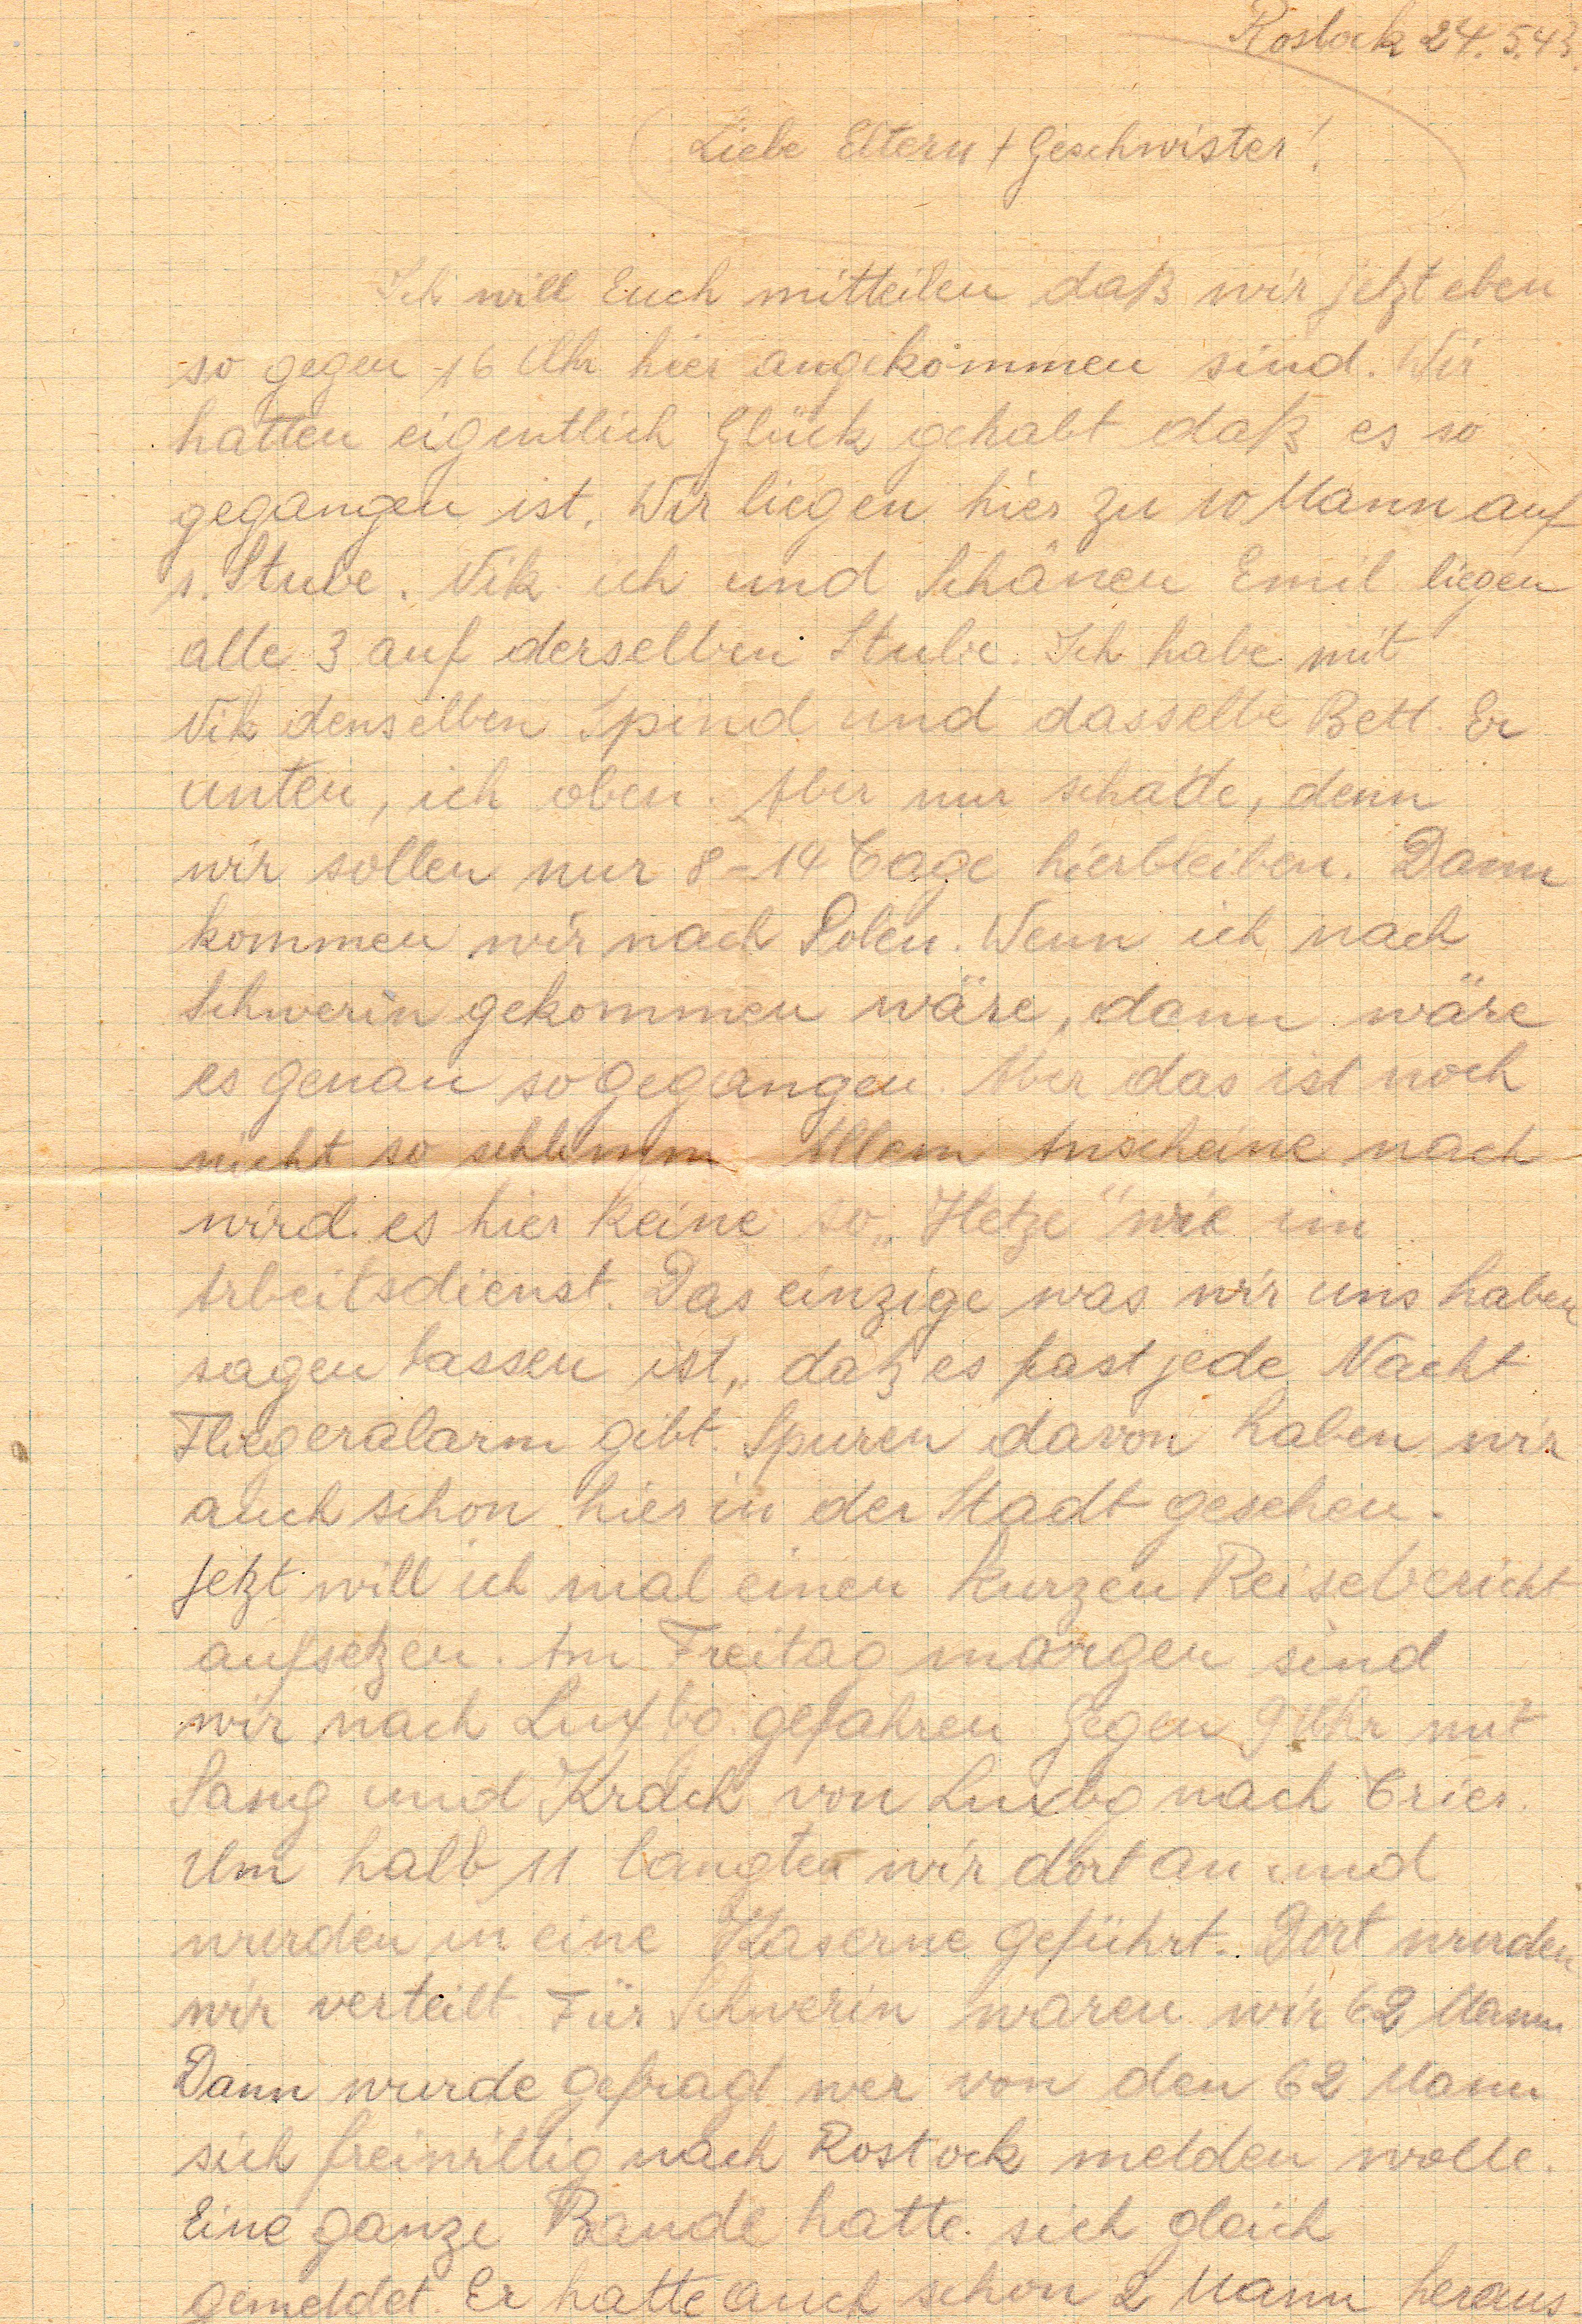 Rostock 24.5.43.
Liebe Eltern + Geschwister!
Ich will Euch mitteilen daß wir jetzt eben
so gegen 16 Uhr hier angekommen sind. Wir
hatten eigentlich Glück gehabt daß es so
gegangen ist. Wir liegen hier zu 10 Mann auf
1. Stube. Nik ich und Schânen Emil liegen
alle 3 auf derselben Stube. Ich habe mit
Nik denselben Spind und dasselbe Bett. Er
unten, ich oben. Aber nur schade, denn
wir sollen nur 8-14 Tage hierbleiben. Dann
kommen wir nach Polen. Wenn ich nach
Schwerin gekommen wäre, dann wäre
es genau so gegangen. Aber das ist noch
nicht so schlimm Allem Anscheine nach
wird es hier keine so „Hetze" wie im
Arbeitsdienst. Das einzige was wir uns haben
sagen lassen ist, daß es fast jede Nacht
Fliegeralarm gibt Spuren davon haben wir
auch schon hier in der Stadt gesehen.
Jetzt will ich mal einen kurzen Reisebericht
aufsetzen. Am Freitag morgen sind
wir nach Luxbg. gefahren Gegen 9 Uhr mit
Sang und Krach von Luxbg nach Trier.
Um halb 11 langten wir dort an und
wurden in eine Kaserne geführt. Dort wurden
wir verteilt Für Schwerin waren wir 62 Mann
Dann wurde gefragt wer von den 62 Mann
sich freiwillig nach Rostock melden wolle.
Eine ganze Bande hatte sich gleich
gemeldet. Er hatte auch schon 2 Mann heraus